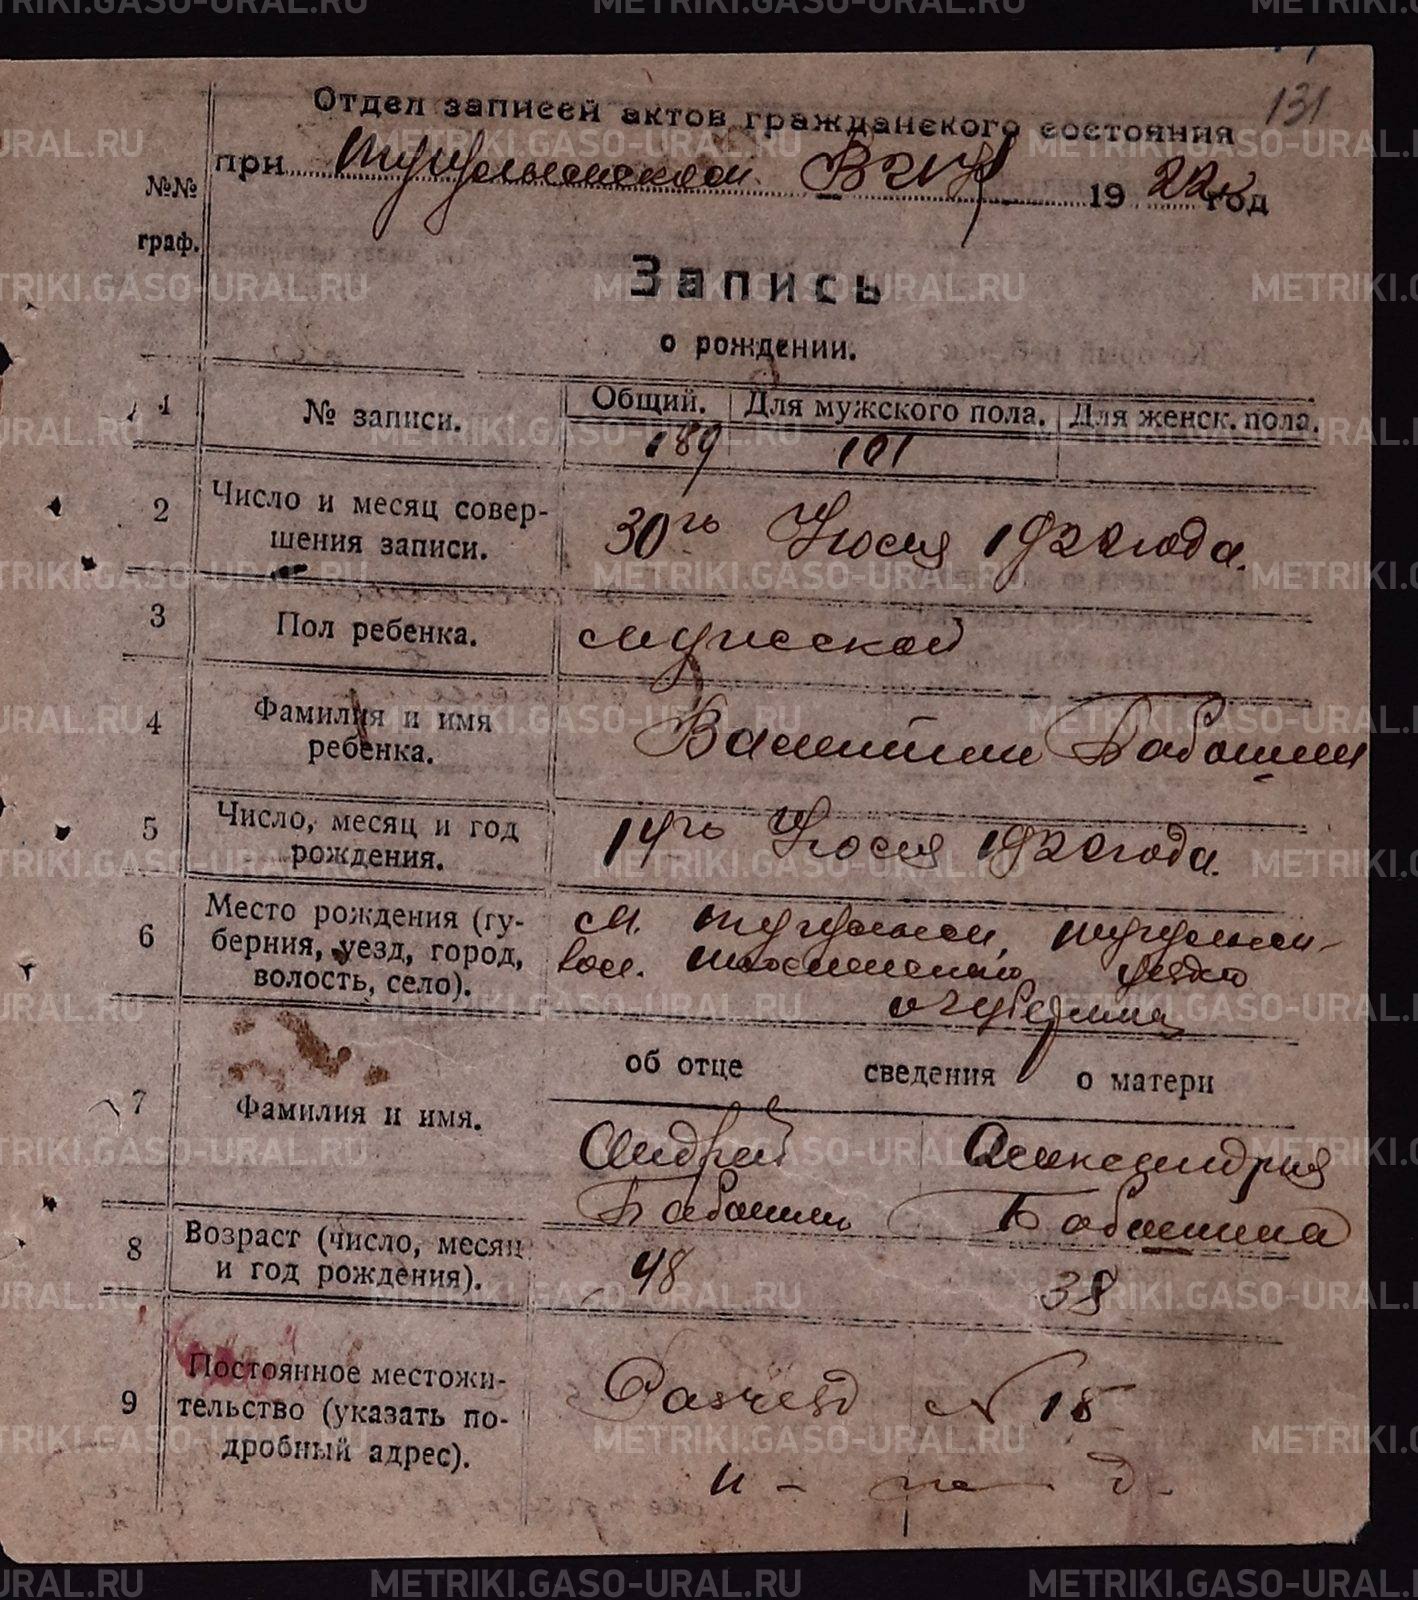 131
Отдел записей актов гражданского состояния
при Тугулымской 1922 год
№№
граф.
Запись
о рождении.
1 № записи. Общий. Для мужского пола. Для женск. пола.
189 101
2 Число и месяц совер-
шения записи. 30го Июня 1922 года.
3 Пол ребенка. мужской
4 Фамилия и имя
ребенка. Валентин Бабошин
5 Число, месяц и год
рождения. 14го Июня 1922 года.
6 Место рождения (гу-
берния, уезд, город,
волость, село).
уезда
губернии
об отце сведения о матери
7 Фамилия и имя. Андрей Александрия
Бабошин Бабошина
8 Возраст (число, месяц
и год рождения). 48 38
9 Постоянное местожи-
тельство (указать по-
дробный адрес). Разъезд № 18
METRIKI.GASO-URAL.RU